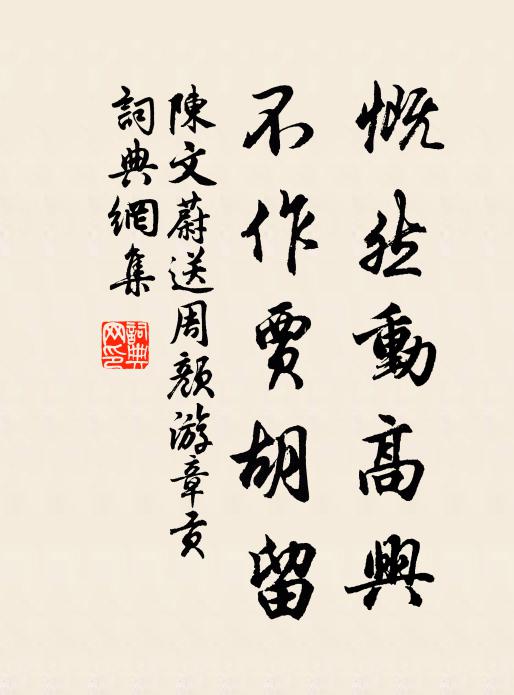 慨然動高興
不作賈胡留
陳文蔚送周顏游章贡
詞典網集
詞典网印